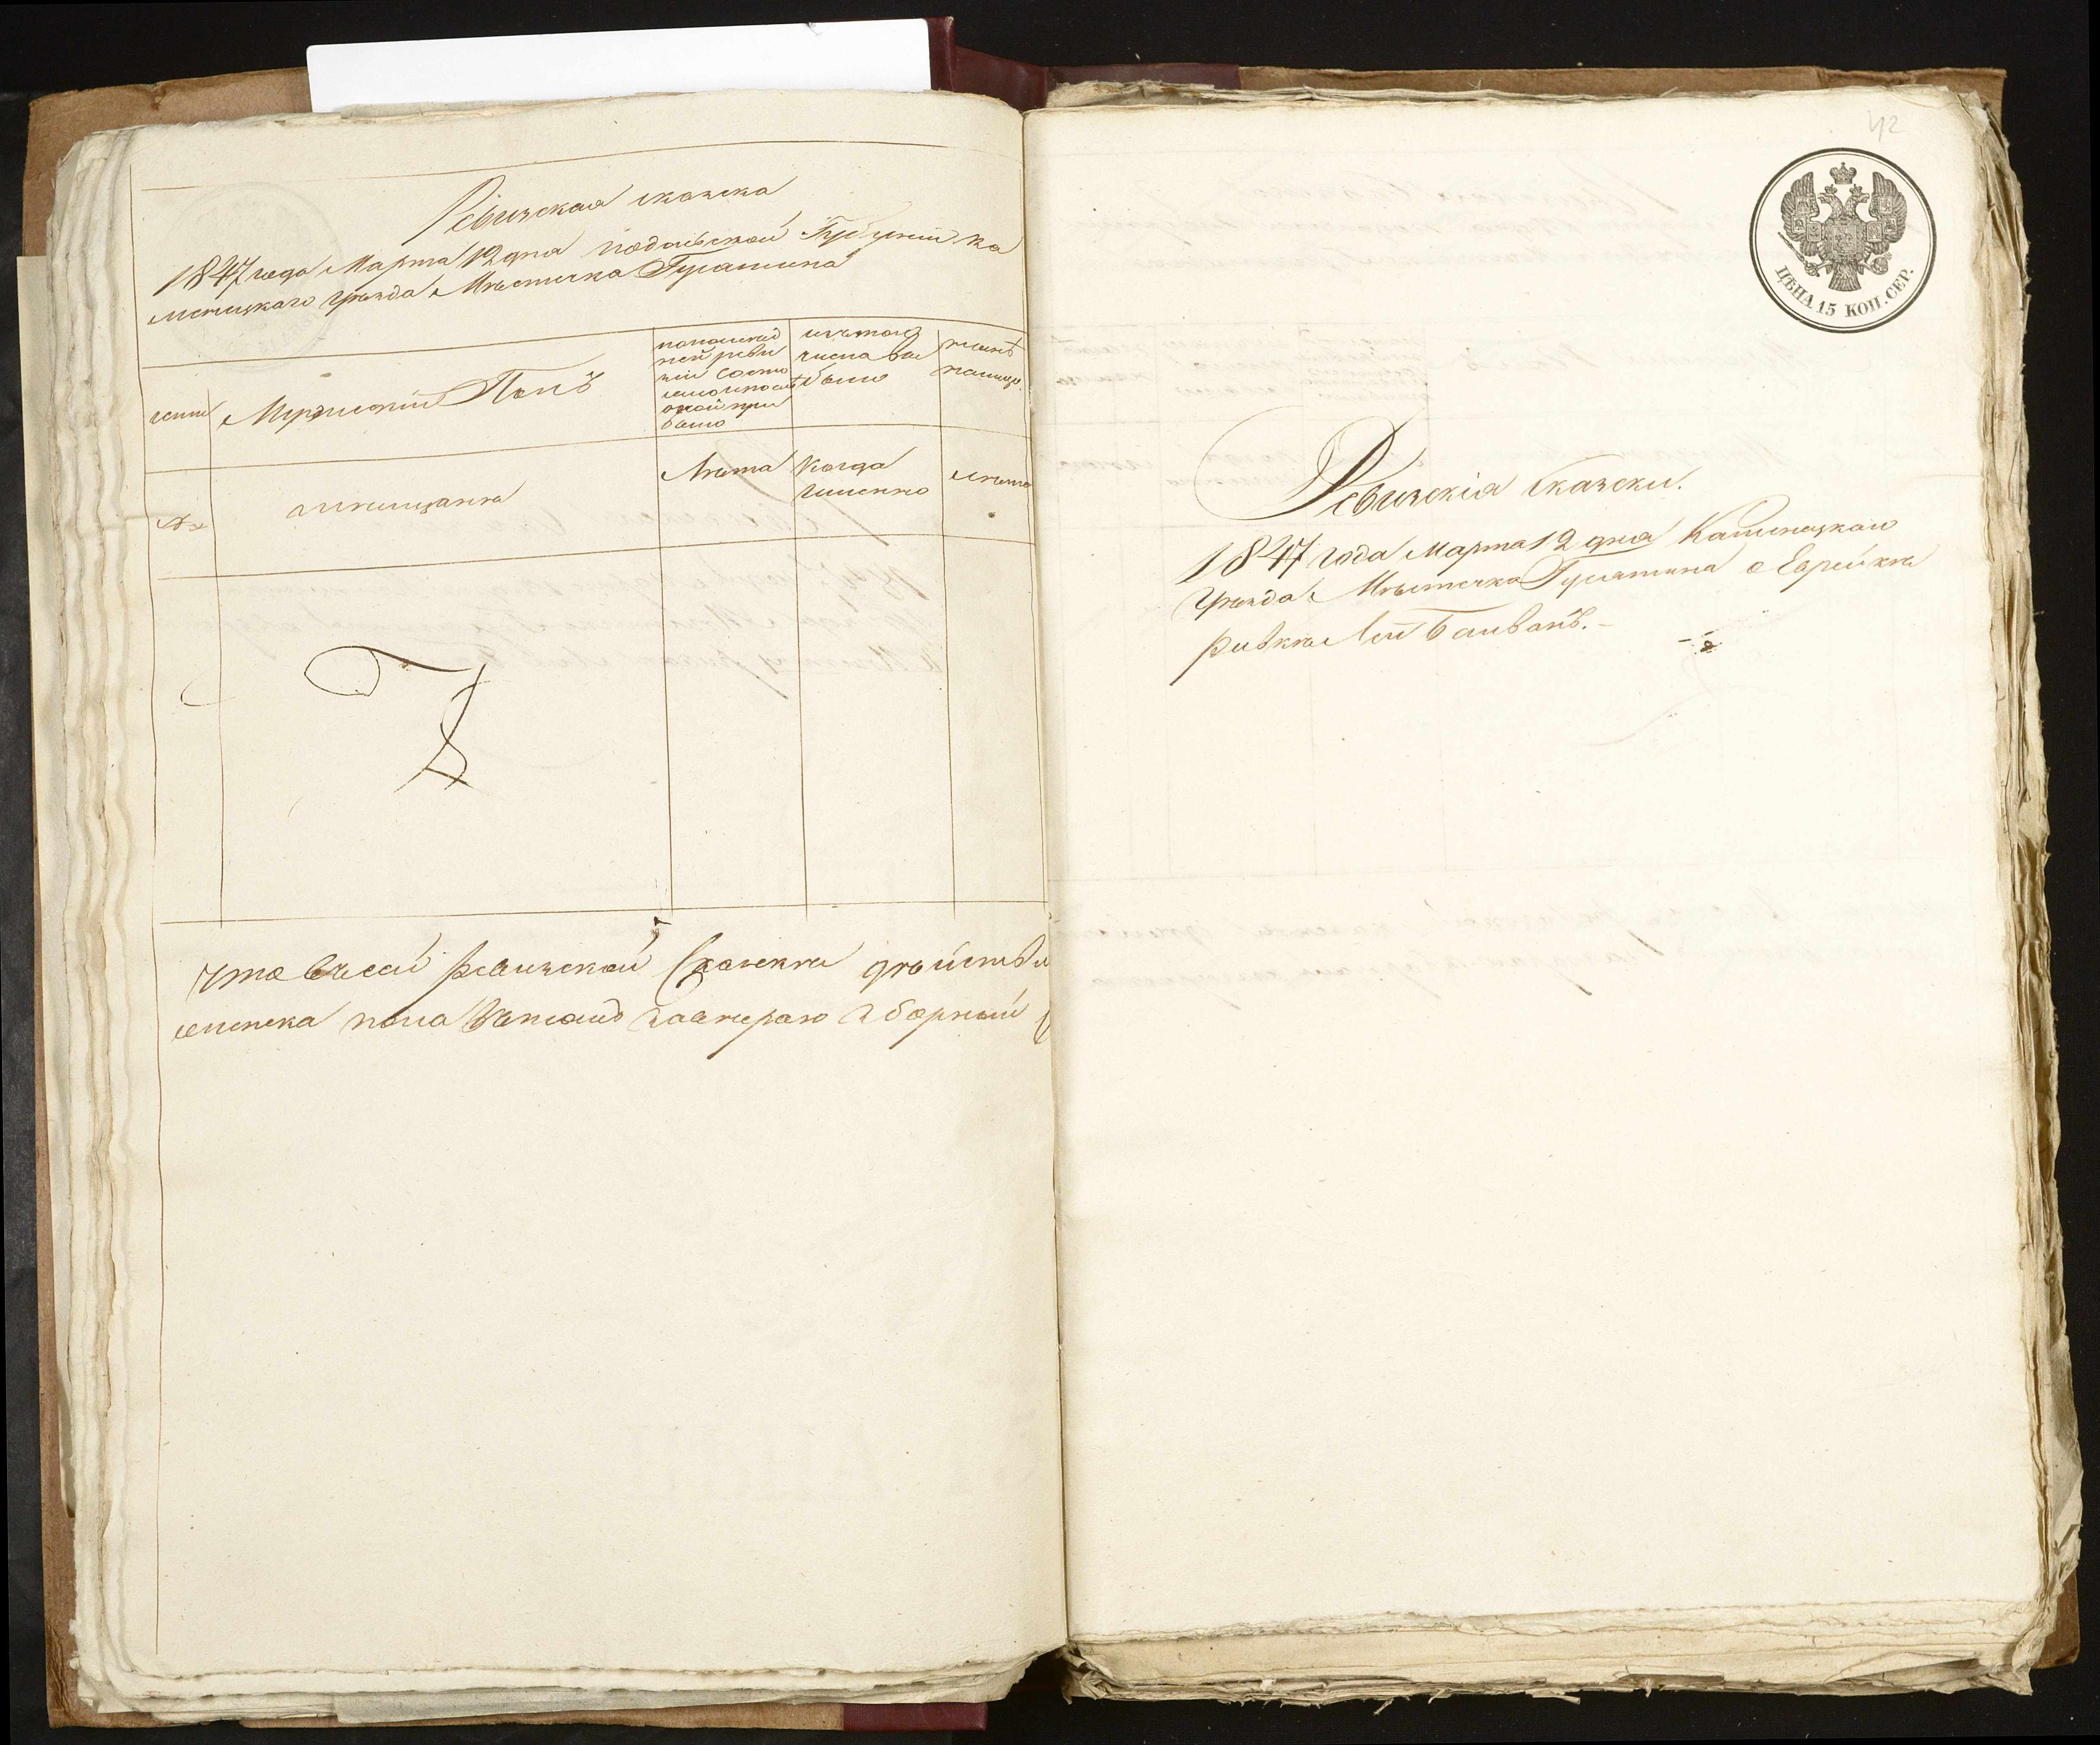 Ревизская сказка
1847 года Марта 12 дня Подольской Губернии Ка
менецкаго уезда Местечка Гусятина
семьи
Мужеский Полъ
по послед
ней реви
зии состо
яло и после
оной при
было
изъ того
числа вы
было
ныне
на лицо
№
мещане
Лета
Когда
именно
Лета
Что въ сей ревизской Сказке действи
1847
42
ЦѢНА 15 КОП. СЕР.
Ревизскія сказки.
1847 года Марта 12 дня Каменецкаго
уезда Местечка Гусятина о Еврейке